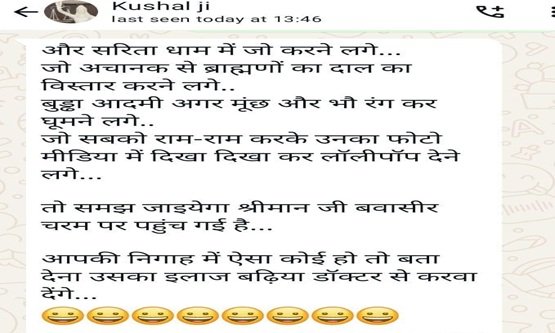 Kushal ji
last seen today at 13:46
और सरिता धाम में जो करने लगे...
जो अचानक से ब्राह्मणों का दाल का
विस्तार करने लगे..
बुड्ढा आदमी अगर मूंछ और भौ रंग कर
घूमने लगे..
जो सबको राम-राम करके उनका फोटो
मीडिया में दिखा दिखा कर लॉलीपॉप देने
लगे...
तो समझ जाइयेगा श्रीमान जी बवासीर
चरम पर पहुंच गई है...
आपकी निगाह में ऐसा कोई हो तो बता
देना उसका इलाज बढ़िया डॉक्टर से करवा
देंगे...
😀😀😀😀😀😀😀😀